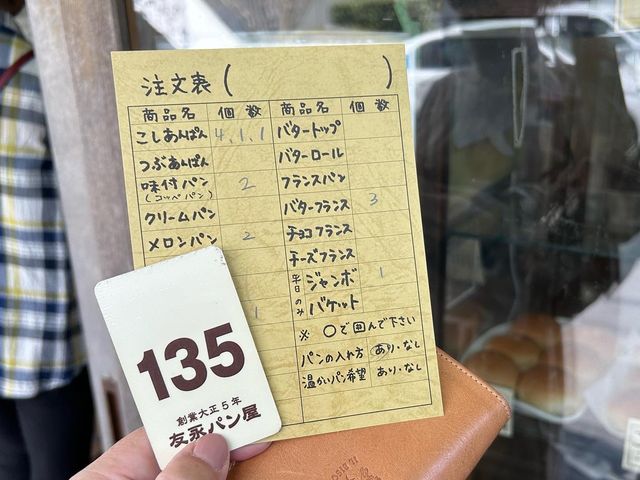 注文表 (　　　)
商品名 個数 商品名 個数
こしあんぱん 4,1,1 バタートップ
つぶあんぱん バターロール
味付パン 2 フランスパン
(コッペパン)
クリームパン バターフランス 3
メロンパン 2 チョコフランス
チーズフランス
平日のみ ジャンボ 1
1 バケット
※ ○で囲んで下さい
パンの入れ方 あり・なし
温かいパン希望 あり・なし
135
創業大正5年
友永パン屋